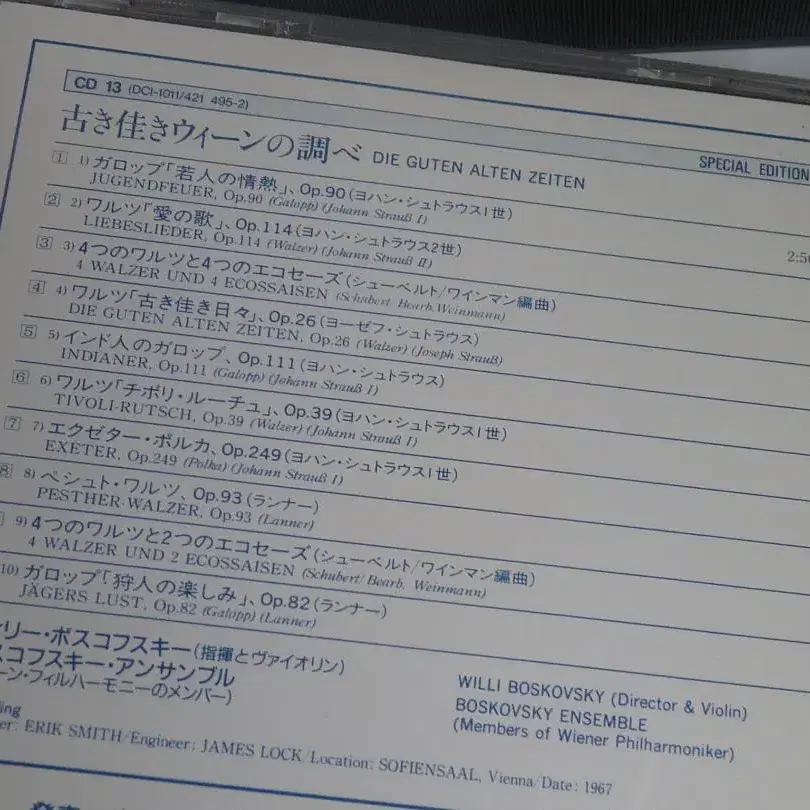 CD 13 (DCI-1011/421 495-2)
古き佳きウィーンの調べ DIE GUTEN ALTEN ZEITEN
SPECIAL EDITION
1 1) ガロップ「若人の情熱」、Op.90 (ヨハン・シュトラウスI世)
JUGENDFEUER, Op.90 (Galopp) (Johann Strauß I)
2 2) ワルツ「愛の歌」、Op.114 (ヨハン・シュトラウス2世)
2:50
LIEBESLIEDER, Op.114 (Walzer) (Johann Strauß II)
3 3) 4つのワルツと4つのエコセーズ (シューベルト/ワインマン編曲)
4 WALZER UND 4 ECOSSAISEN (Schubert Bearb. Weinmann)
4 4) ワルツ「古き佳き日々」、Op.26 (ヨーゼフ・シュトラウス)
DIE GUTEN ALTEN ZEITEN, Op.26 (Walzer) (Joseph Strauß)
5 5) インド人のガロップ、Op.111 (ヨハン・シュトラウス)
INDIANER, Op.111 (Galopp) (Johann Strauß I)
6 6) ワルツ「チボリ・ルーチュ」、Op.39 (ヨハン・シュトラウスI世)
TIVOLI-RUTSCH, Op.39 (Walzer) (Johann Strauß I)
7 7) エクゼター・ポルカ、Op.249 (ヨハン・シュトラウスI世)
EXETER, Op.249 (Polka) (Johann Strauß I)
8 8) ペシュト・ワルツ、Op.93 (ランナー)
PESTHER-WALZER, Op.93 (Lanner)
9) 4つのワルツと2つのエコセーズ (シューベルト/ワインマン編曲)
4 WALZER UND 2 ECOSSAISEN (Schubert/Bearb. Weinmann)
10) ガロップ「狩人の楽しみ」、Op.82 (ランナー)
JÄGERS LUST, Op.82 (Galopp) (Lanner)
リー・ボスコフスキー (指揮とヴァイオリン)
スコフスキー・アンサンブル
ーン・フィルハーモニーのメンバー)
WILLI BOSKOVSKY (Director & Violin)
BOSKOVSKY ENSEMBLE
(Members of Wiener Philharmoniker)
ing
er: ERIK SMITH/Engineer: JAMES LOCK/Location: SOFIENSAAL, Vienna/Date: 1967